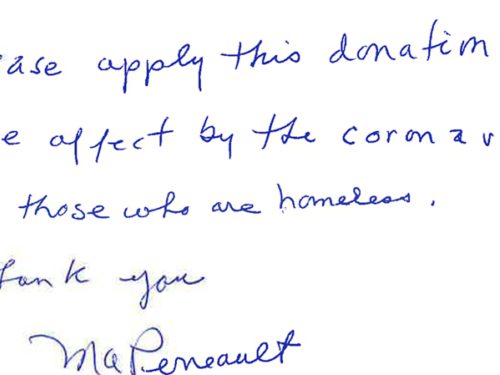 ase apply this donation
e affect by the corona v
those who are homeless.
hank you